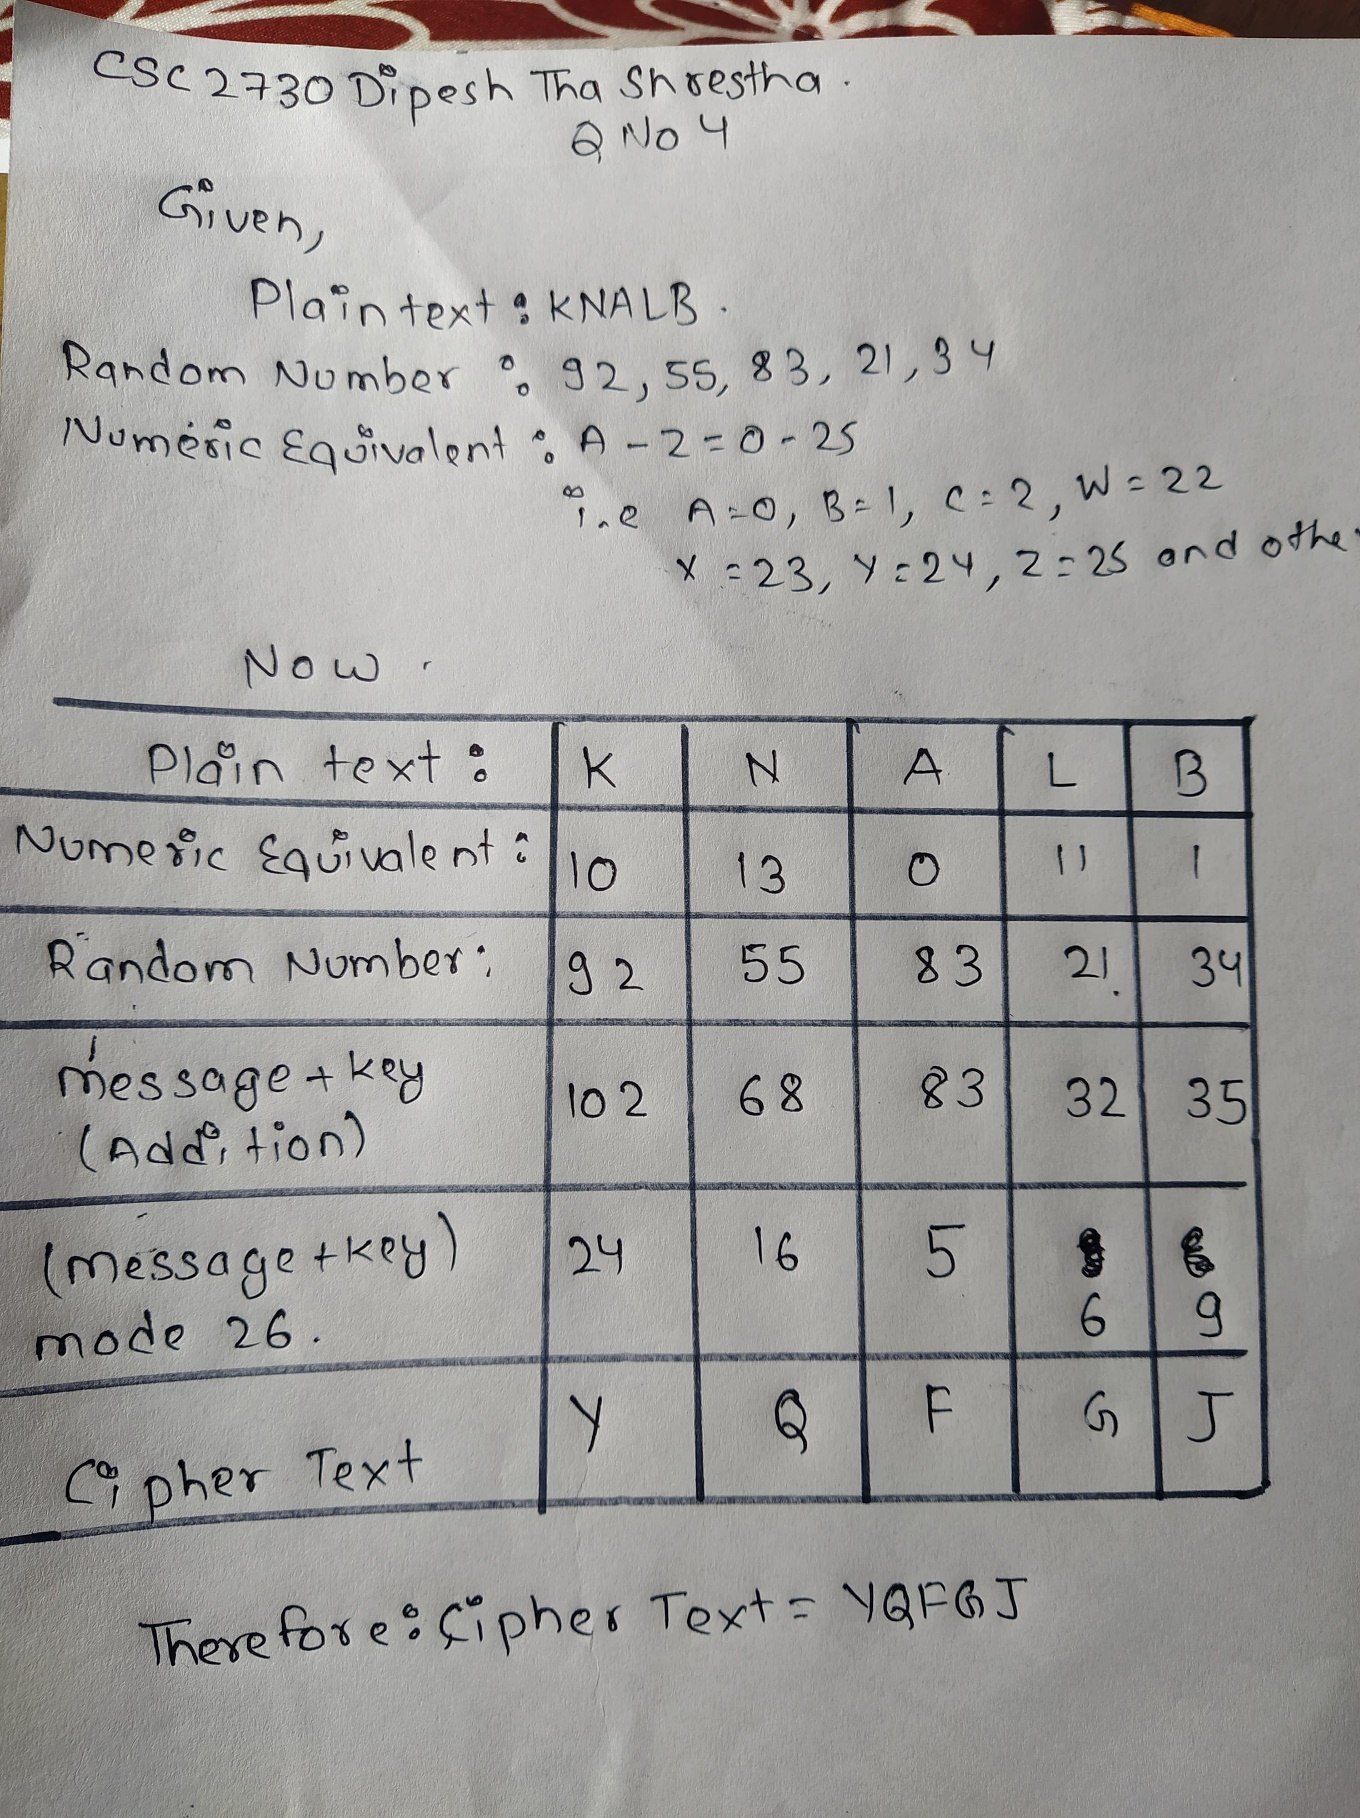 CSC 2730 Dipesh Tha Shrestha.
Q No 4
Given,
Plain text : KNALB.
Random Number : 92, 55, 83, 21, 34
Numeric Equivalent : A - Z = 0 - 25
i.e A=0, B=1, C=2, W=22
X=23, Y=24, Z=25 and othe
Now.
Plain text : K N A L B
Numeric Equivalent : 10 13 0 11 1
Random Number : 92 55 83 21 34
message + key (Addition) 102 68 83 32 35
(message + key) mode 26. 24 16 5 6 9
Cipher Text Y Q F G J
Therefore : Cipher Text = YQFGJ